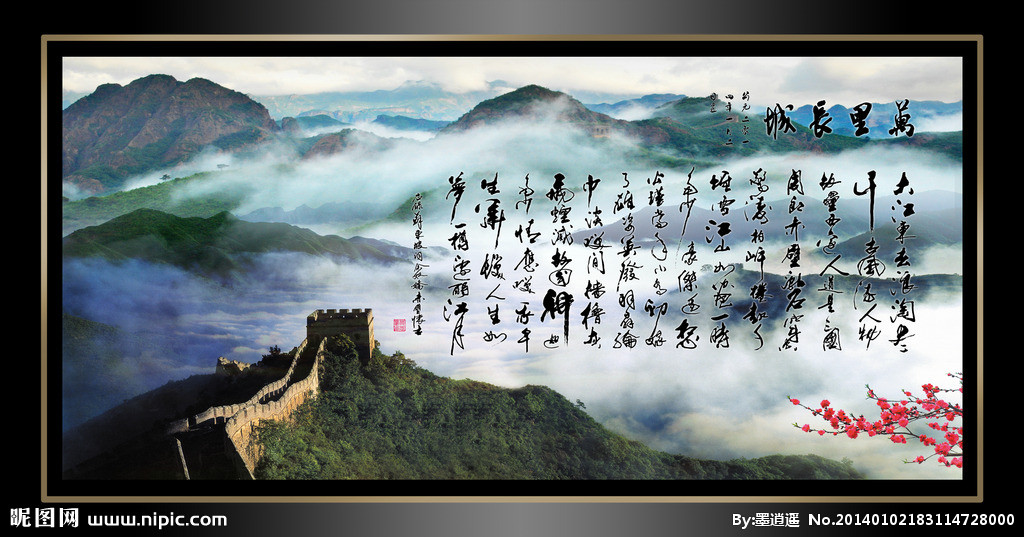 萬里長城
大江東去浪淘盡
千古風流人物
故壘西邊人道是三國
周郎赤壁亂石穿空
驚濤拍岸捲起千
堆雪江山如畫一時
多少豪傑遥想
公瑾當年小喬初嫁
了雄姿英發羽扇綸
巾談笑間檣櫓灰
飛煙滅故國神遊
多情應笑我早
生華髮人生如
夢一樽還酹江月
昵图网 www.nipic.com
By:墨逍遥 No.20140102183114728000